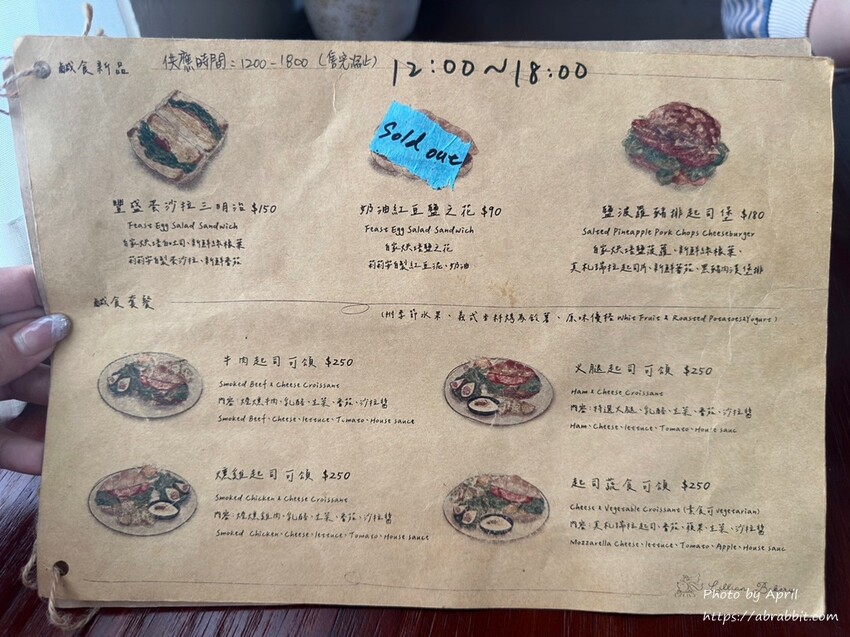 鹹食新品 供應時間：1200-1800（售完為止） 12:00~18:00
Sold out
豐盛蛋沙拉三明治 $150
Feast Egg Salad Sandwich
自家烘培白吐司、新鮮綠橡葉
莉莉安自製蛋沙拉、新鮮番茄
奶油紅豆鹽之花 $90
Feast Egg Salad Sandwich
自家烘培鹽之花
莉莉安自製紅豆泥、奶油
鹽波羅豬排起司堡 $180
Salted Pineapple Pork Chops Cheeseburger
自家烘培鹽菠蘿、新鮮綠橡葉、
莫札瑞拉起司片、新鮮番茄、黑豬肉漢堡排
鹹食套餐
(附季節水果、義式香料烤馬鈴薯、原味優格 With Fruit & Roasted Potatoes & Yogurt)
牛肉起司可頌 $250
Smoked Beef & Cheese Croissant
內容：煙燻牛肉、乳酪、生菜、番茄、沙拉醬
Smoked Beef、Cheese、lettuce、Tomato、House sauce
火腿起司可頌 $250
Ham & Cheese Croissant
內容：特選火腿、乳酪、生菜、番茄、沙拉醬
Ham、Cheese、lettuce、Tomato、House sauc
燻雞起司可頌 $250
Smoked Chicken & Cheese Croissant
內容：煙燻雞肉、乳酪、生菜、番茄、沙拉醬
Smoked Chicken、Cheese、lettuce、Tomato、House sauce
起司蔬食可頌 $250
Cheese & Vegetable Croissant (素食可 vegetarian)
內容：莫札瑞拉起司、番茄、蘋果、生菜、沙拉醬
Mozzarella Cheese、lettuce、Tomato、Apple、House sauc
Photo by April
https://abrabbit.com